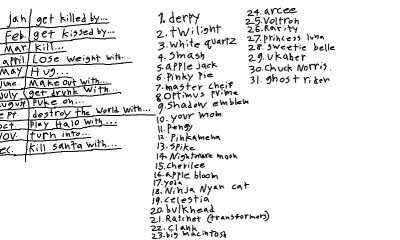 jan get killed by...
Feb. get kissed by...
Mar kill...
april Lose weight with...
May Hug...
June Make out with...
July get drunk with...
August Puke on...
ept. destroy the World with...
oct. Play Halo with...
nov. turn into...
ec. kill santa with...
1. derpy
2. tWilight
3. white quartz
4. Smash
5. apple jack
6. Pinky Pie
7. master cheif
8 Optimus prime
9. Shadow emblem
10. your mom
11. pengy
12. Pinkamena
13. Spike
14. Nightmare moon
15. Cherilee
16. Apple bloom
17. yola
18. Ninja Nyan cat
19. celestia
20. bulkhead
21. Ratchet (transformers)
22. Clank
23. big macintosh
24. arcee
25. Voltron
26. Rarity
27. princess luna
28. Sweetie belle
29. vkaber
30. Chuck Norris.
31. ghost rider